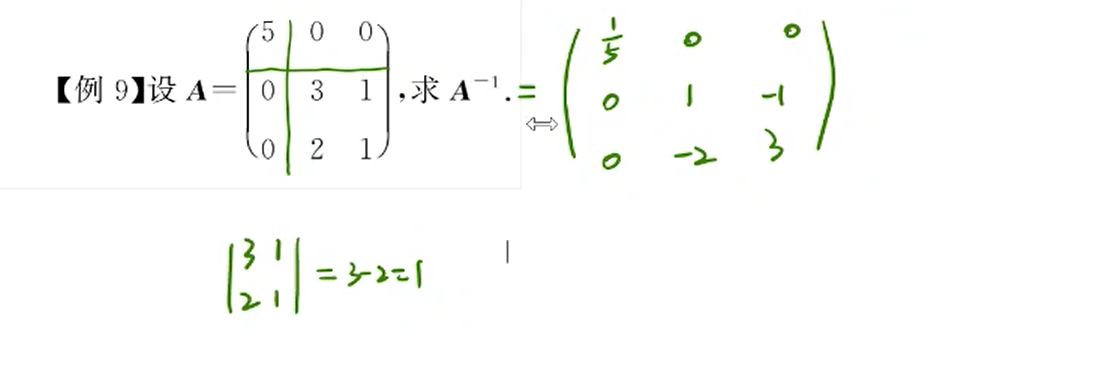 【例 9】设 A = (5 0 0; 0 3 1; 0 2 1), 求 A⁻¹. = (1/5 0 0; 0 1 -1; 0 -2 3)
|3 1; 2 1| = 3-2=1